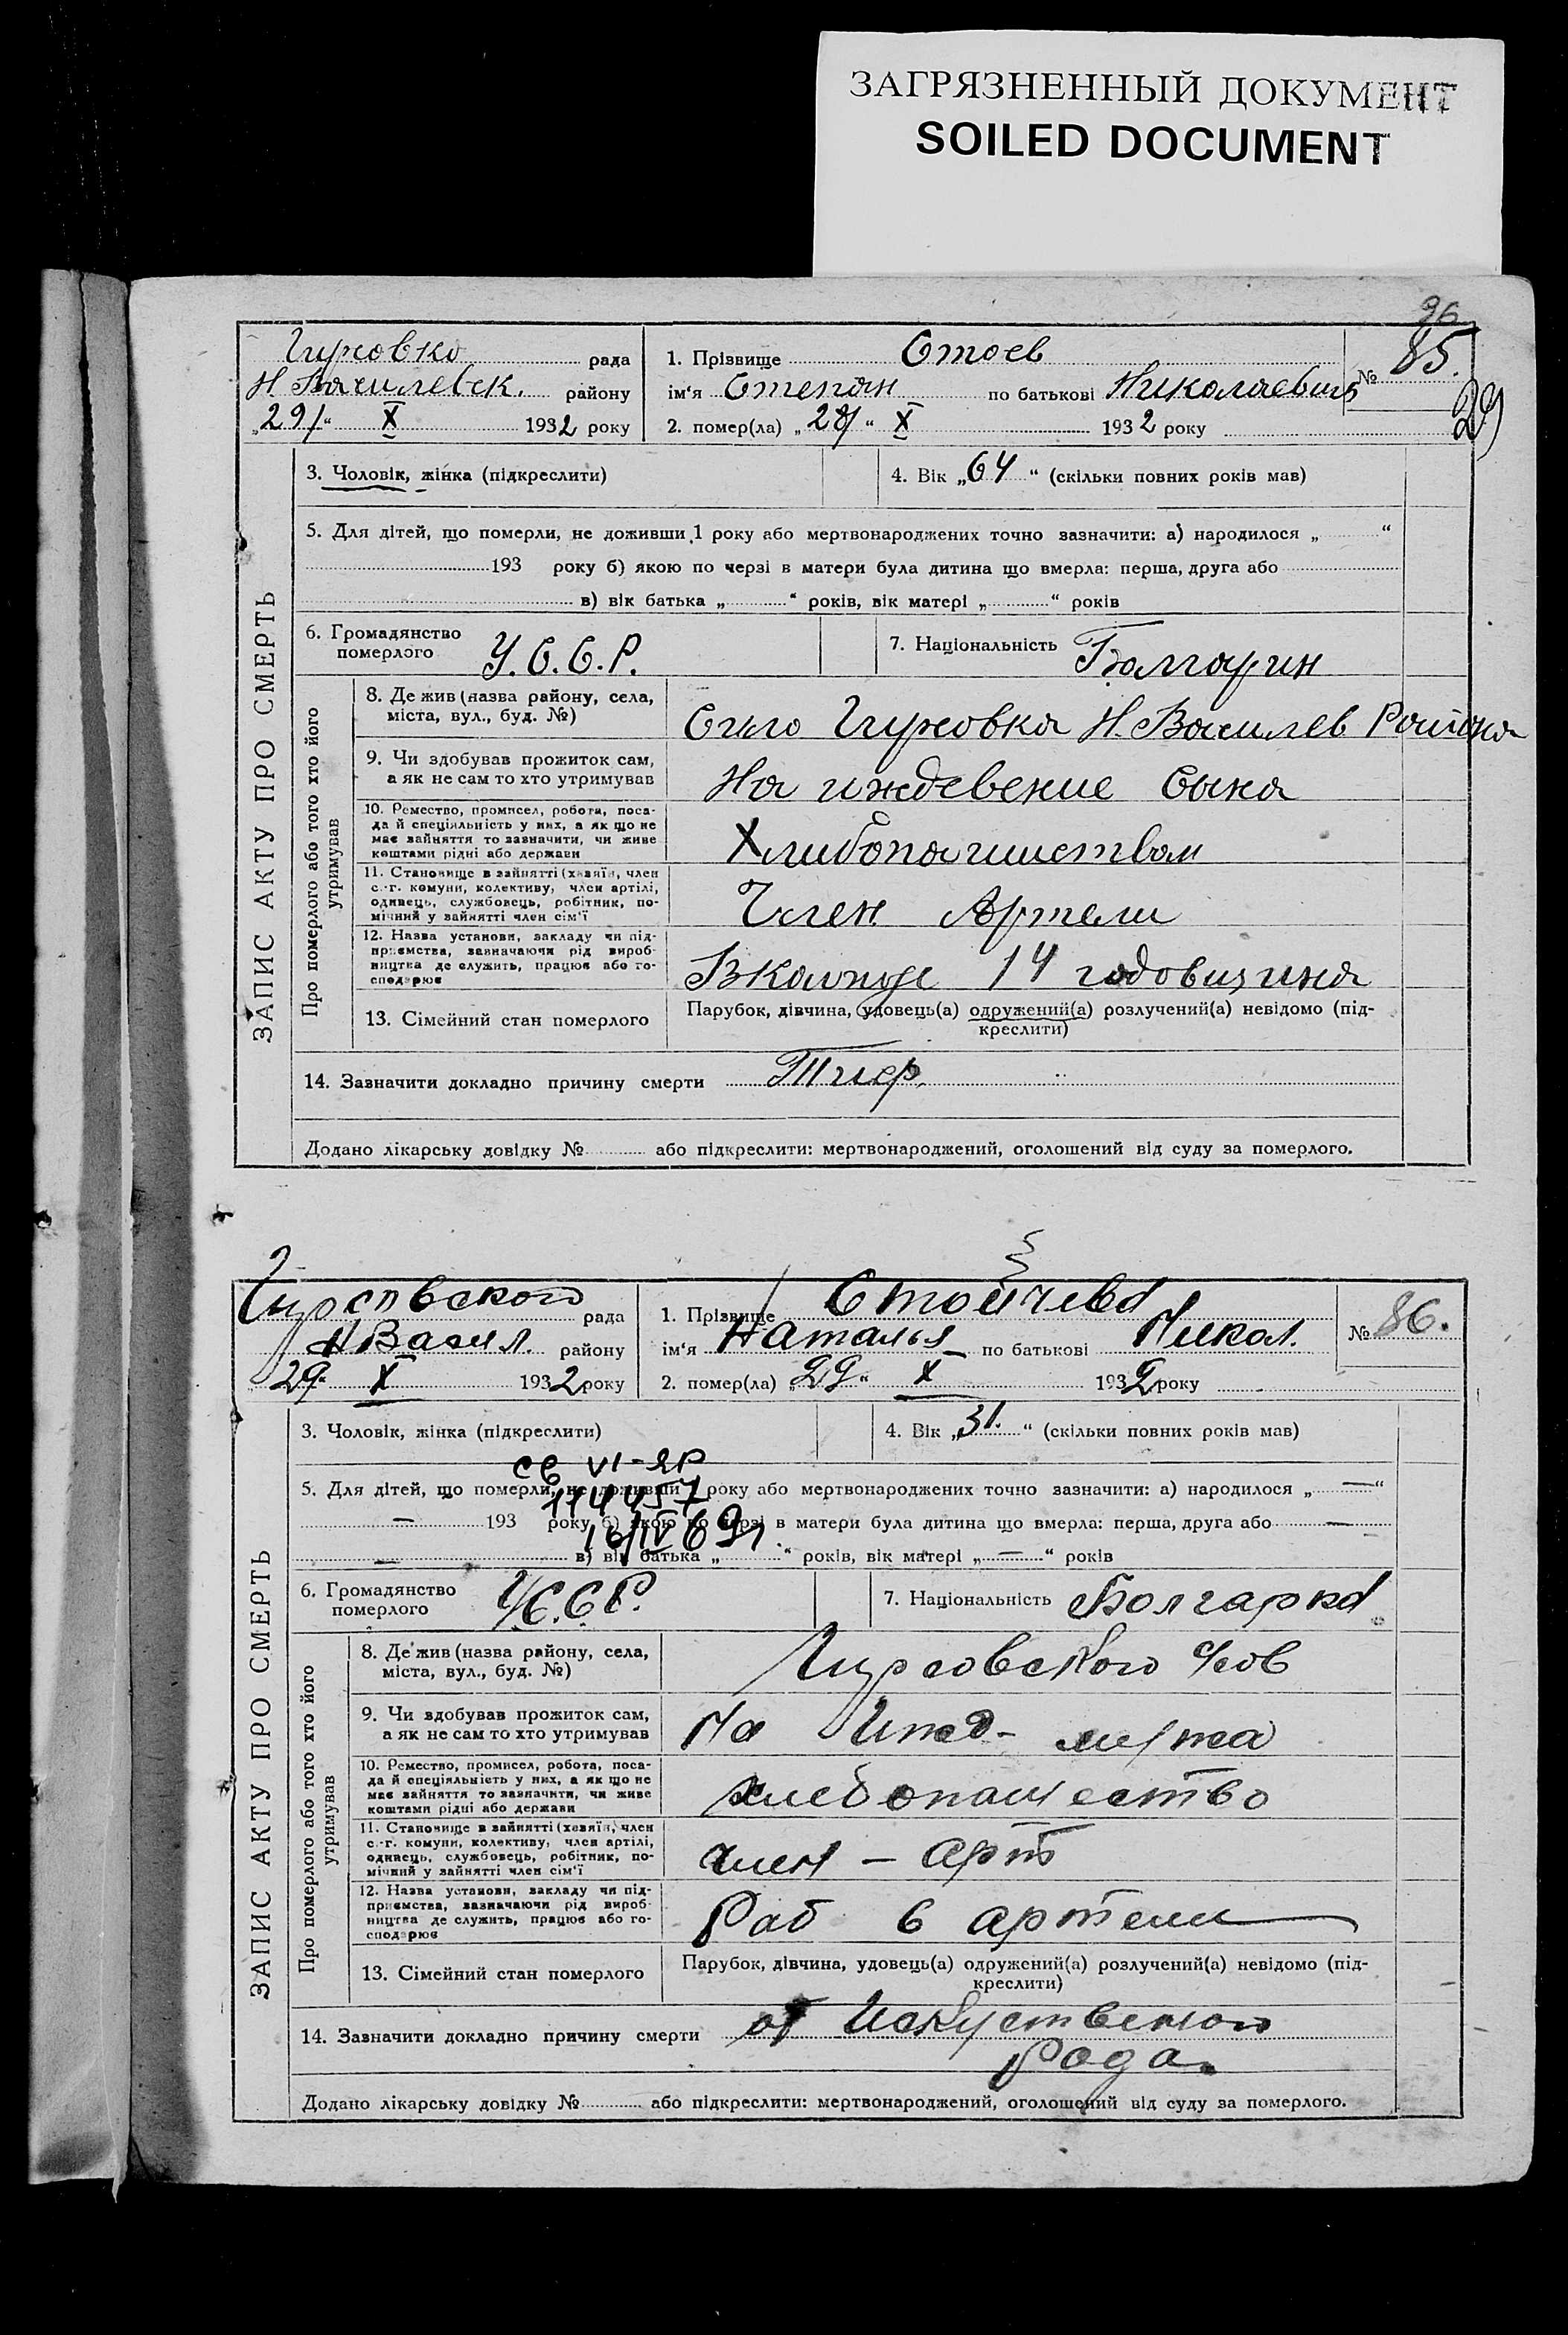 ЗАГРЯЗНЕННЫЙ ДОКУМЕНТ
SOILED DOCUMENT
96
Гирсовко рада
Н Василевск. району
„29/“ X 1932 року
1. Прізвище Стоев
ім‘я Степан по батькові Николаевич
2. помер(ла) „28/“ X 1932 року
№ 85.
29
ЗАПИС АКТУ ПРО СМЕРТЬ
3. Чоловік, жінка (підкреслити)
4. Вік „64“ (скільки повних років мав)
5. Для дітей, що померли, не доживши 1 року або мертвонароджених точно зазначити: а) народилося „ “
193 року б) якою по черзі в матери була дитина що вмерла: перша, друга або
в) вік батька „ “ років, вік матері „ “ років
6. Громадянство
померлого У.С.С.Р.
7. Національність Болгарин
Про померлого або того хто його
утримував
8. Де жив (назва району, села,
міста, вул., буд. №)
Село Гирсовка Н. Василев Района
9. Чи здобував прожиток сам,
а як не сам то хто утримував
На иждевение Сына
10. Ремество, промисел, робота, поса-
да й спеціяльність у них, а як що не
має зайняття то зазначити, чи живе
коштами рідні або держави
11. Становище в зайнятті (хазяїн, член
с.-г. комуни, колективу, член артілі,
одинець, службовець, робітник, по-
мічний у зайнятті член сім‘ї
Член Артели
12. Назва установи, закладу чи під-
приємства, зазначаючи рід вироб-
ництва де служить, працює або го-
сподарює
14 годовщина
13. Сімейний стан померлого
Парубок, дівчина, удовець(а) одружений(а) розлучений(а) невідомо (під-
креслити)
14. Зазначити докладно причину смерти
Додано лікарську довідку № або підкреслити: мертвонароджений, оголошений від суду за померлого.
Гирсовского рада
Н Васил. району
29 X 1932 року
1. Прізвище Стойчева
ім‘я Наталья по батькові Никол.
2. помер(ла) „29“ X 1932 року
№ 86.
ЗАПИС АКТУ ПРО СМЕРТЬ
3. Чоловік, жінка (підкреслити)
4. Вік „31.“ (скільки повних років мав)
св VI-ЯР
114457
16/IV 69г.
5. Для дітей, що померли, не доживши 1 року або мертвонароджених точно зазначити: а) народилося „—“
— 193 року б) якою по черзі в матери була дитина що вмерла: перша, друга або —
— в) вік батька „ “ років, вік матері „—“ років
6. Громадянство
померлого У.С.С.Р.
7. Національність Болгарка
Про померлого або того хто його
утримував
8. Де жив (назва району, села,
міста, вул., буд. №)
Гирсовского
9. Чи здобував прожиток сам,
а як не сам то хто утримував
На Ижд- мужа
10. Ремество, промисел, робота, поса-
да й спеціяльність у них, а як що не
має зайняття то зазначити, чи живе
коштами рідні або держави
хлебопашество
11. Становище в зайнятті (хазяїн, член
с.-г. комуни, колективу, член артілі,
одинець, службовець, робітник, по-
мічний у зайнятті член сім‘ї
член – арт
12. Назва установи, закладу чи під-
приємства, зазначаючи рід вироб-
ництва де служить, працює або го-
сподарює
Раб в артели
13. Сімейний стан померлого
Парубок, дівчина, удовець(а) одружений(а) розлучений(а) невідомо (під-
креслити)
14. Зазначити докладно причину смерти от Искуственого
Рода.
Додано лікарську довідку № або підкреслити: мертвонароджений, оголошений від суду за померлого.